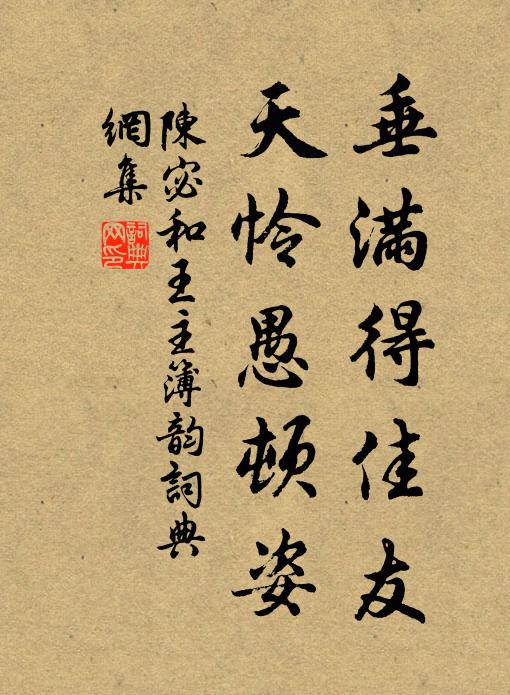 垂滿得佳友
天怜愚頓姿
陳宓和王主簿韵詞典
網集
詞典
网印